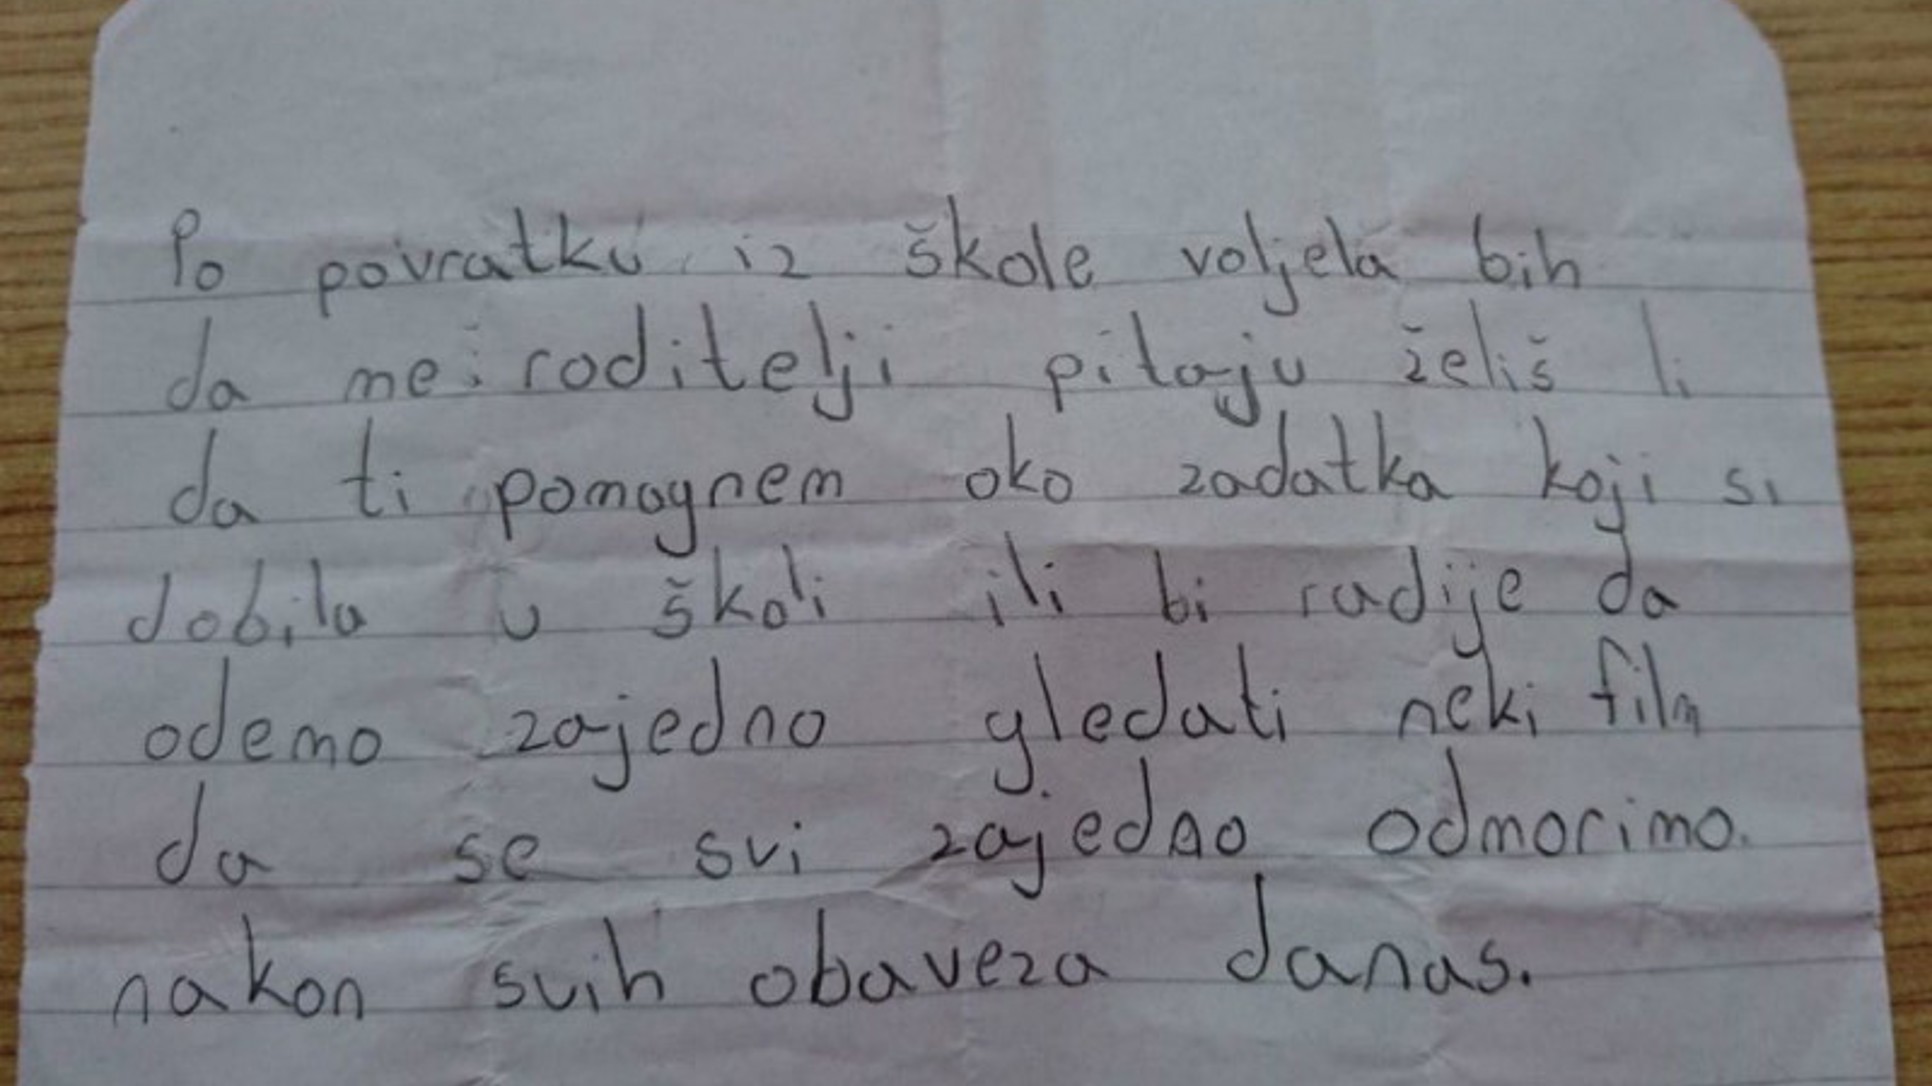 Po povratku iz škole voljela bih
da me roditelji pitaju želiš li
da ti pomognem oko zadatka koji si
dobila u školi ili bi radije da
odemo zajedno gledati neki film
da se svi zajedno odmorimo.
nakon svih obaveza danas.